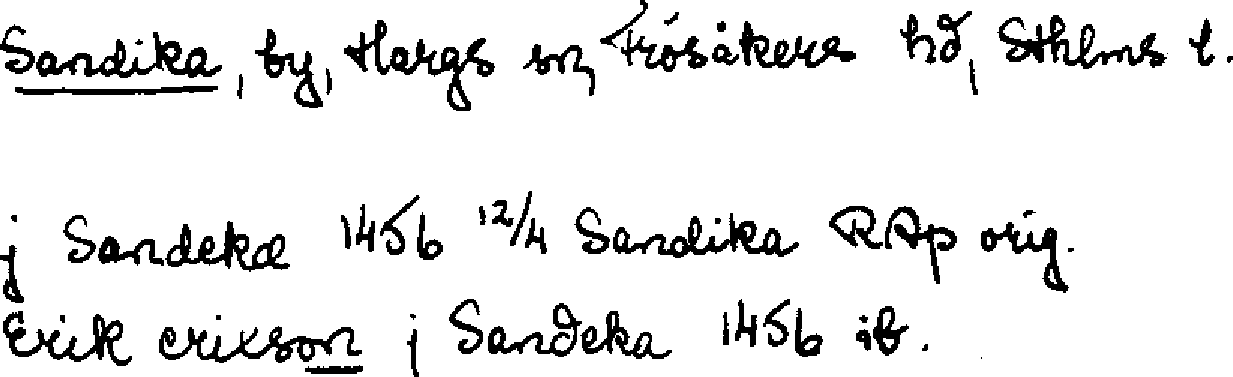 Sandika, by, Hargs sn, Frösåkers hd, Sthlms l.
j Sandekæ 1456 12/4 Sandika RAp orig.
Erik erixson j Sandeka 1456 ib.